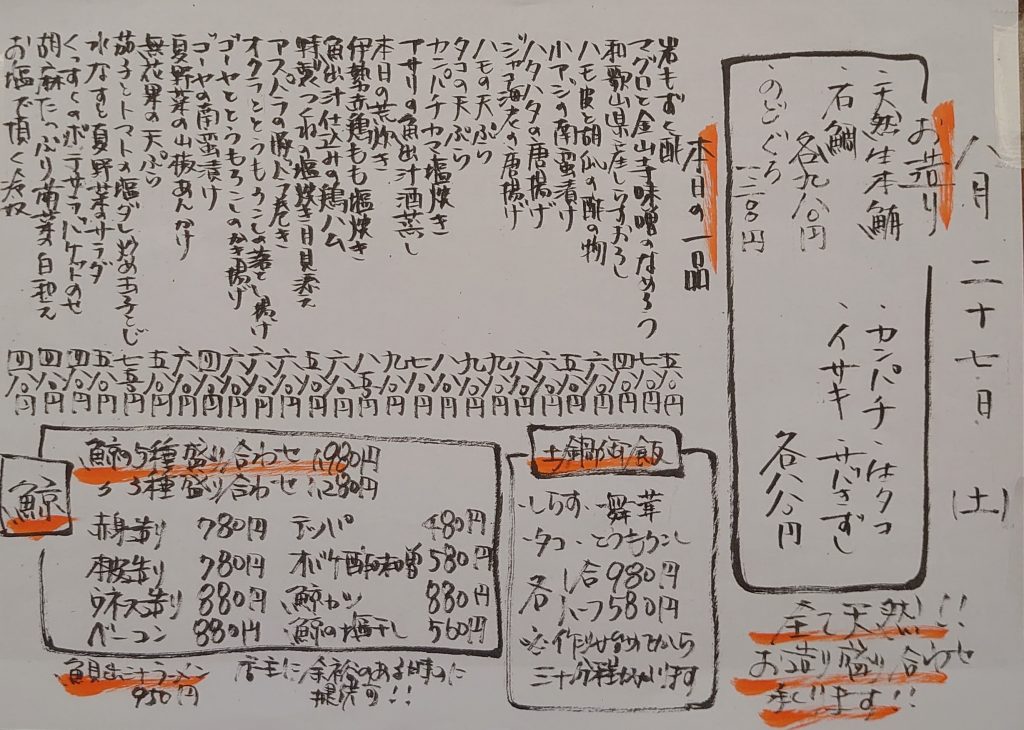 八月二十七日(土)
お造り
・天然生本鮪
・石鯛
各九八〇円
・のどぐろ
一三八〇円
・カンパチ
・イサキ
・生タコ
・サバきずし
各八八〇円
全て天然!!
お造り盛り合わせ
承ります!!
本日の一品
岩もずく酢 五八〇円
マグロと金山寺味噌のなめろう 七八〇円
和歌山県産しらすおろし 四八〇円
ハモ皮と胡瓜の酢の物 六八〇円
小アジの南蛮漬け 五八〇円
ハタハタの唐揚げ 六八〇円
ジャコ海老の唐揚げ 六八〇円
ハモの天ぷら 九八〇円
タコの天ぷら 九八〇円
カンパチカマ塩焼き 八八〇円
アサリの魚出汁酒蒸し 七八〇円
本日の荒炊き 九八〇円
伊勢赤鶏もも塩焼き 八五〇円
魚出汁仕込みの鶏ハム 六八〇円
特製つくねの塩焼き月見添え 五八〇円
アスパラの豚バラ巻き 六八〇円
オクラととうもろこしの落とし揚げ 六八〇円
ゴーヤととうもろこしのかき揚げ 六八〇円
ゴーヤの南蛮漬け 四八〇円
夏野菜の山椒あんかけ 六八〇円
無花果の天ぷら 五八〇円
茄子とトマトの塩ダレ炒め玉子とじ 七五〇円
水なすと夏野菜のサラダ 五八〇円
ポテサラバケットのせ 四八〇円
胡麻たっぷり菊菜の白和え 四八〇円
お塩で頂く枝豆 四八〇円
土鍋御飯
・しらす・舞茸
・タコ・とうもろこし
各 一合980円
ハーフ580円
※作りはじめてから
三十分程かかります
鯨
鯨の5種盛り合わせ 1,980円
〃3種盛り合わせ 1,280円
赤身造り 780円
本皮造り 780円
ウネス造り 880円
ベーコン 880円
テッパ 480円
オバケ酢味噌 580円
鯨カツ 880円
鯨の塩干し 560円
魚出汁ラーメン
950円
店主に余裕のある時のに
提供可!!